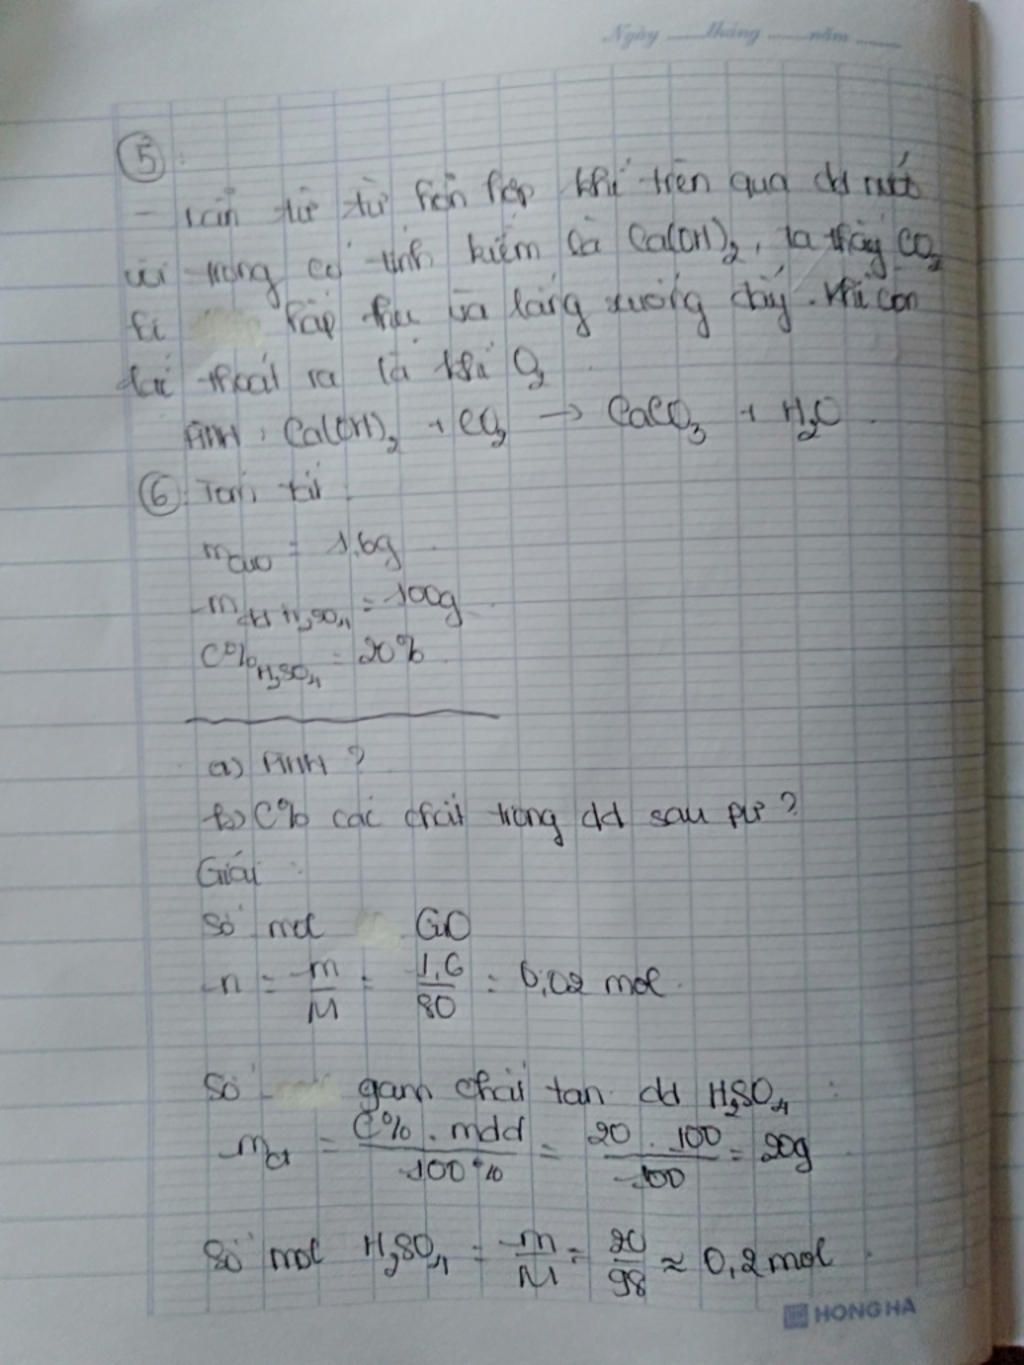 Ngày tháng năm
5
- Dẫn từ từ hỗn hợp khí trên qua dd nước
vôi trong có tính kiềm là Ca(OH)2, ta thấy CO2
bị hấp thu và lắng xuống đáy. Khí còn
lại thoát ra là khí O2
PTHH: Ca(OH)2 + CO2 → CaCO3 + H2O
6 Tóm tắt:
mCuO = 1,6g
mdd H2SO4 = 100g
C%H2SO4 = 20%
a) PTHH?
b) C% các chất trong dd sau pư?
Giải:
Số mol CuO
n = m/M = 1,6/80 = 0,02 mol.
Số gam chất tan dd H2SO4:
mct = C% . mdd/100% = 20 . 100/100 = 20g
Số mol H2SO4 = m/M = 20/98 ≈ 0,2 mol.
HONG HA